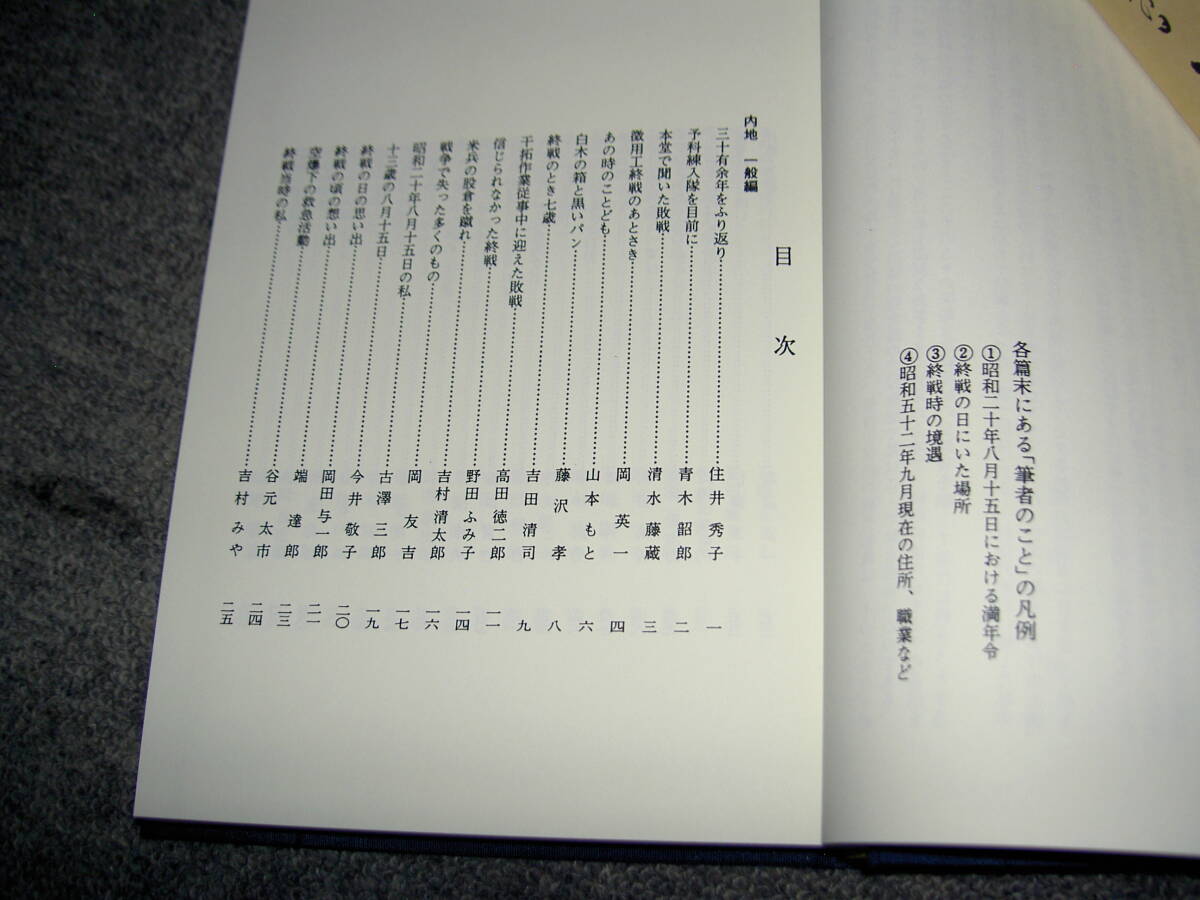 各篇末にある「筆者のこと」の凡例
①昭和二十年八月十五日における満年令
②終戦の日にいた場所
③終戦時の境遇
④昭和五十二年九月現在の住所、職業など
目次
内地 一般編
三十有余年をふり返り……住井秀子 一
予科練入隊を目前に……青木韶郎 二
本堂で聞いた敗戦……清水藤蔵 三
徴用工終戦のあとさき……岡英一 四
あの時のことども……山本もと 六
白木の箱と黒いパン……藤沢孝 八
終戦のとき七歳……吉田清司 九
干拓作業従事中に迎えた敗戦……高田徳二郎 一一
信じられなかった終戦……野田ふみ子 一四
米兵の股倉を蹴れ……吉村清太郎 一六
戦争で失った多くのもの……岡友吉 一七
昭和二十年八月十五日の私……古澤三郎 一九
十三歳の八月十五日……今井敬子 二〇
終戦の日の思い出……岡田与一郎 二一
終戦の頃の想い出……端達郎 二三
空爆下の救急活動……谷元太市 二四
終戦当時の私……吉村みや 二五